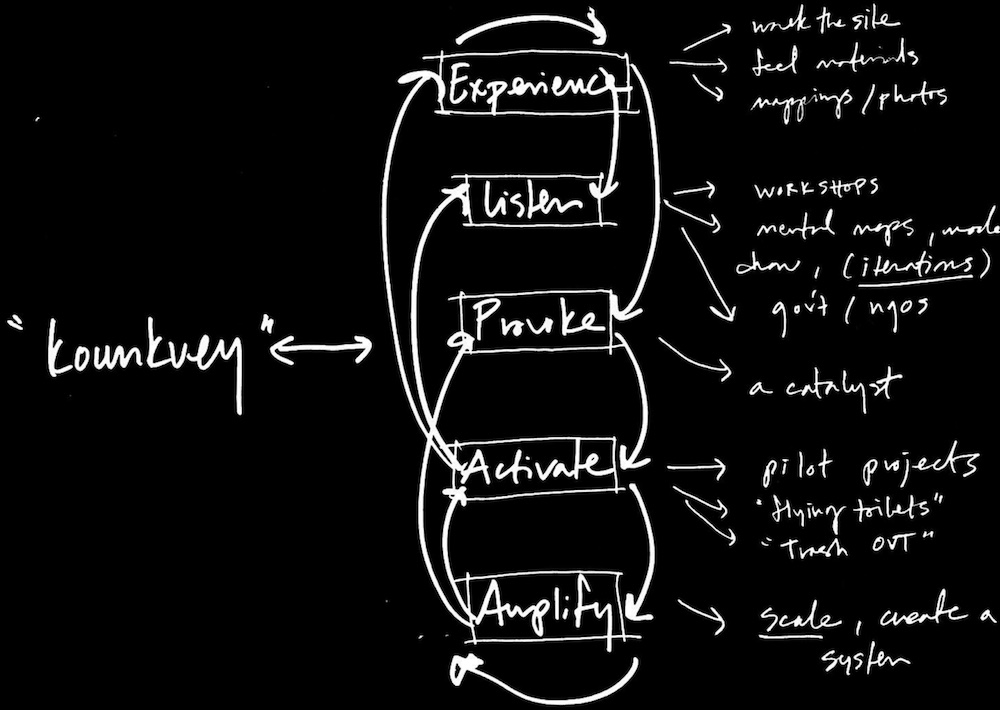 Experience
walk the site
feel materials
mappings/photos
Listen
WORKSHOPS
mental maps, mode
draw, (iterations)
gov't / ngos
Provoke
"kounkuey"
a catalyst
Activate
pilot projects
"flying toilets"
"Trash OUT"
Amplify
scale, create a
system